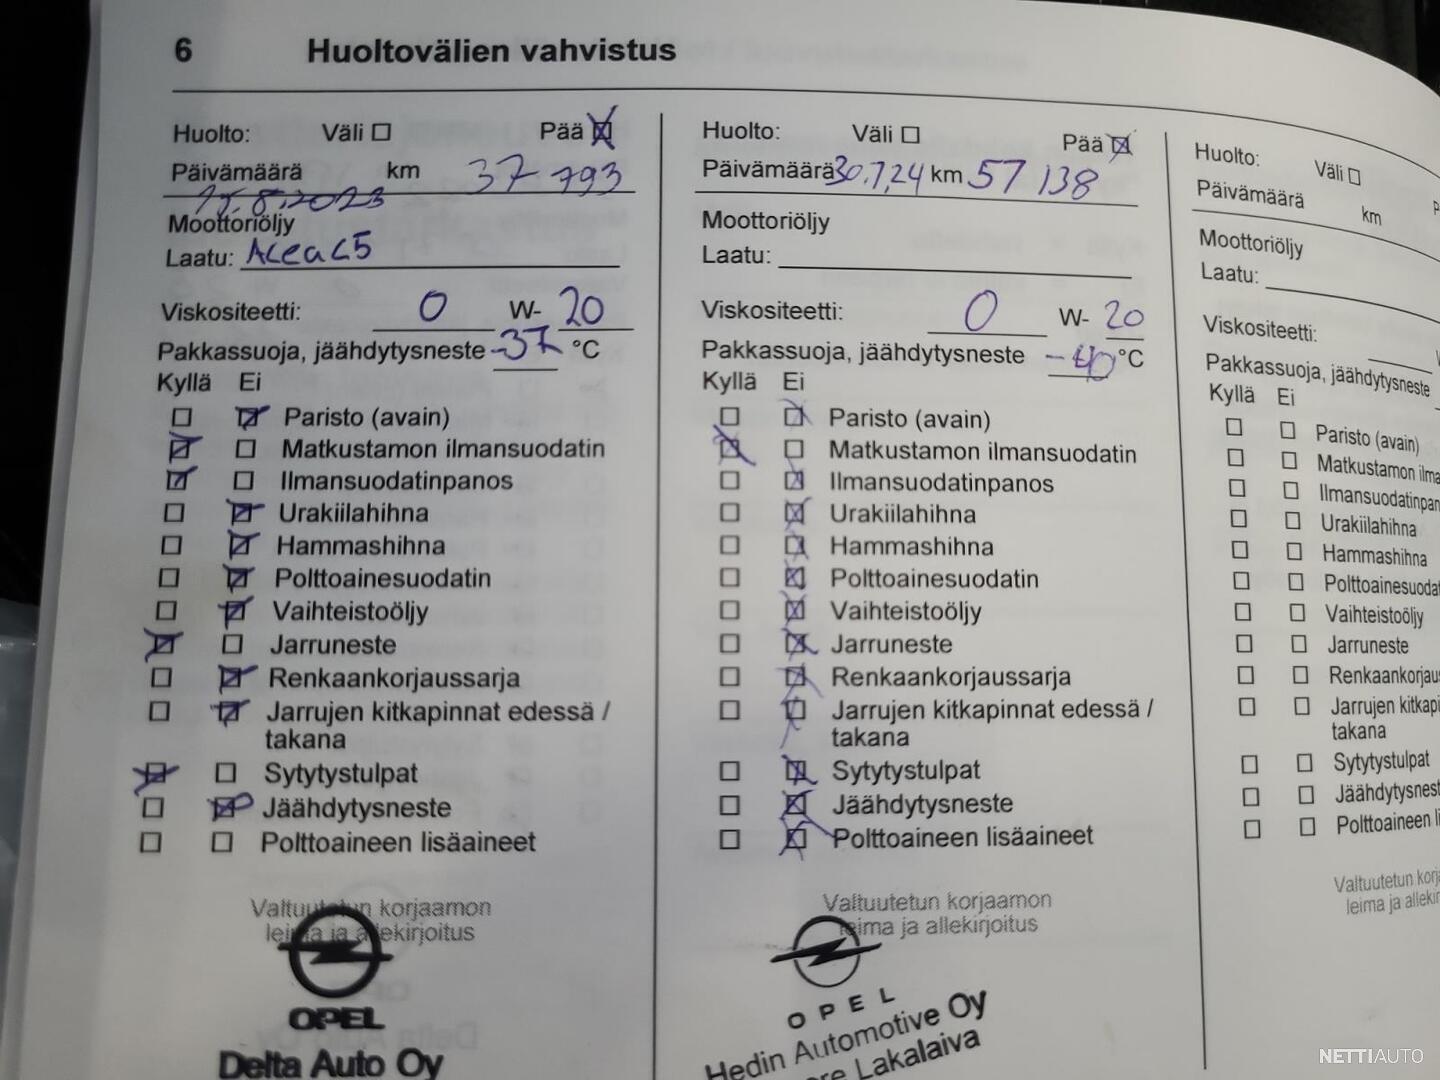 6 Huoltovälien vahvistus
Huolto: Väli Pää
Päivämäärä km 37 793
25.8.2023
Moottoriöljy
Laatu: Acea C5
Viskositeetti: 0 W- 20
Pakkassuoja, jäähdytysneste -37 °C
Kyllä Ei
Paristo (avain)
Matkustamon ilmansuodatin
Ilmansuodatinpanos
Urakiilahihna
Hammashihna
Polttoainesuodatin
Vaihteistoöljy
Jarruneste
Renkaankorjaussarja
Jarrujen kitkapinnat edessä /
takana
Sytytystulpat
Jäähdytysneste
Polttoaineen lisäaineet
Valtuutetun korjaamon
leima ja allekirjoitus
OPEL
Delta Auto Oy
Huolto: Väli Pää
Päivämäärä 30.7.24 km 57 138
Moottoriöljy
Laatu:
Viskositeetti: 0 W- 20
Pakkassuoja, jäähdytysneste -40 °C
Kyllä Ei
Paristo (avain)
Matkustamon ilmansuodatin
Ilmansuodatinpanos
Urakiilahihna
Hammashihna
Polttoainesuodatin
Vaihteistoöljy
Jarruneste
Renkaankorjaussarja
Jarrujen kitkapinnat edessä /
takana
Sytytystulpat
Jäähdytysneste
Polttoaineen lisäaineet
Valtuutetun korjaamon
leima ja allekirjoitus
OPEL
Hedin Automotive Oy
Lakalaiva
Huolto: Väli
Päivämäärä km
Moottoriöljy
Laatu:
Viskositeetti:
Pakkassuoja, jäähdytysneste
Kyllä Ei
Paristo (avain)
Matkustamon ilma
Ilmansuodatinpan
Urakiilahihna
Hammashihna
Polttoainesuodat
Vaihteistoöljy
Jarruneste
Renkaankorjaus
Jarrujen kitkapi
takana
Sytytystulpat
Jäähdytysnest
Polttoaineen li
Valtuutetun korja
leima ja allekir
NETTIAUTO